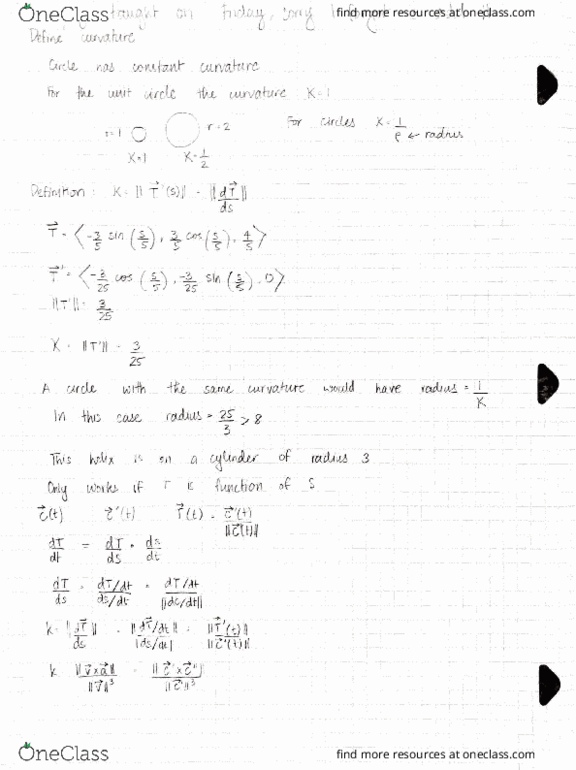 OneClass
find more resources at oneclass.com
taught on Friday, sorry
Define curvature
Circle has constant curvature
For the unit circle the curvature K=1
r=1 r=2 For circles K = 1/ρ ← radius
K=1 K=1/2
Definition: K = ||T⃗'(s)|| = ||dT⃗/ds||
T⃗ = <-3/5 sin(s/5), 3/5 cos(s/5), 4/5>
T⃗' = <-3/25 cos(s/5), -3/25 sin(s/5), 0>
||T'|| = 3/25
K = ||T'|| = 3/25
A circle with the same curvature would have radius = 1/K
In this case radius = 25/3 > 8
This helix is on a cylinder of radius 3
Only works if T is function of S
c⃗(t) c⃗'(t) T⃗(t) = c⃗'(t)/||c⃗'(t)||
dT/dt = dT/ds · ds/dt
dT/ds = dT/dt / ds/dt = dT/dt / ||dc/dt||
k = ||dT⃗/ds|| = ||dT/dt|| / |ds/dt| = ||T⃗'(t)|| / ||c⃗'(t)||
k = ||v⃗×a⃗|| / ||v⃗||³ = ||c⃗'×c⃗''|| / ||c⃗'||³
OneClass
find more resources at oneclass.com